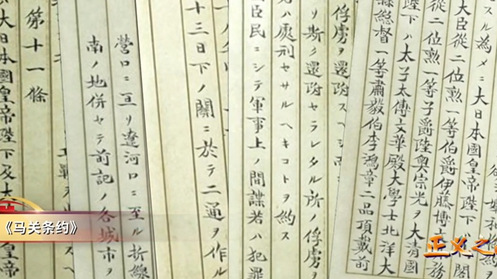 スル為メニ大日本國皇帝陛下
大臣從二位勲一等伯爵伊藤博
大臣從二位勲一等子爵陸奥宗光ヲ大清國
下ハ太子太傅文華殿大學士北洋大
總督一等肅毅伯李鴻章二品頂戴前
俘虜ヲ還附ス
リ斯ク還附セラレタル所ノ俘虜
ハ處刑セサルヘキコトヲ約ス
臣民ニシテ軍事上ノ間諜若ハ犯罪
十三日下ノ關ニ於テ二通ヲ作ル
營口ニ亘リ遼河口ニ至ル折線
南ノ地併セテ前記ノ各城市ヲ
第十一條
大日本國皇帝陛下及大
《马关条约》
正义之